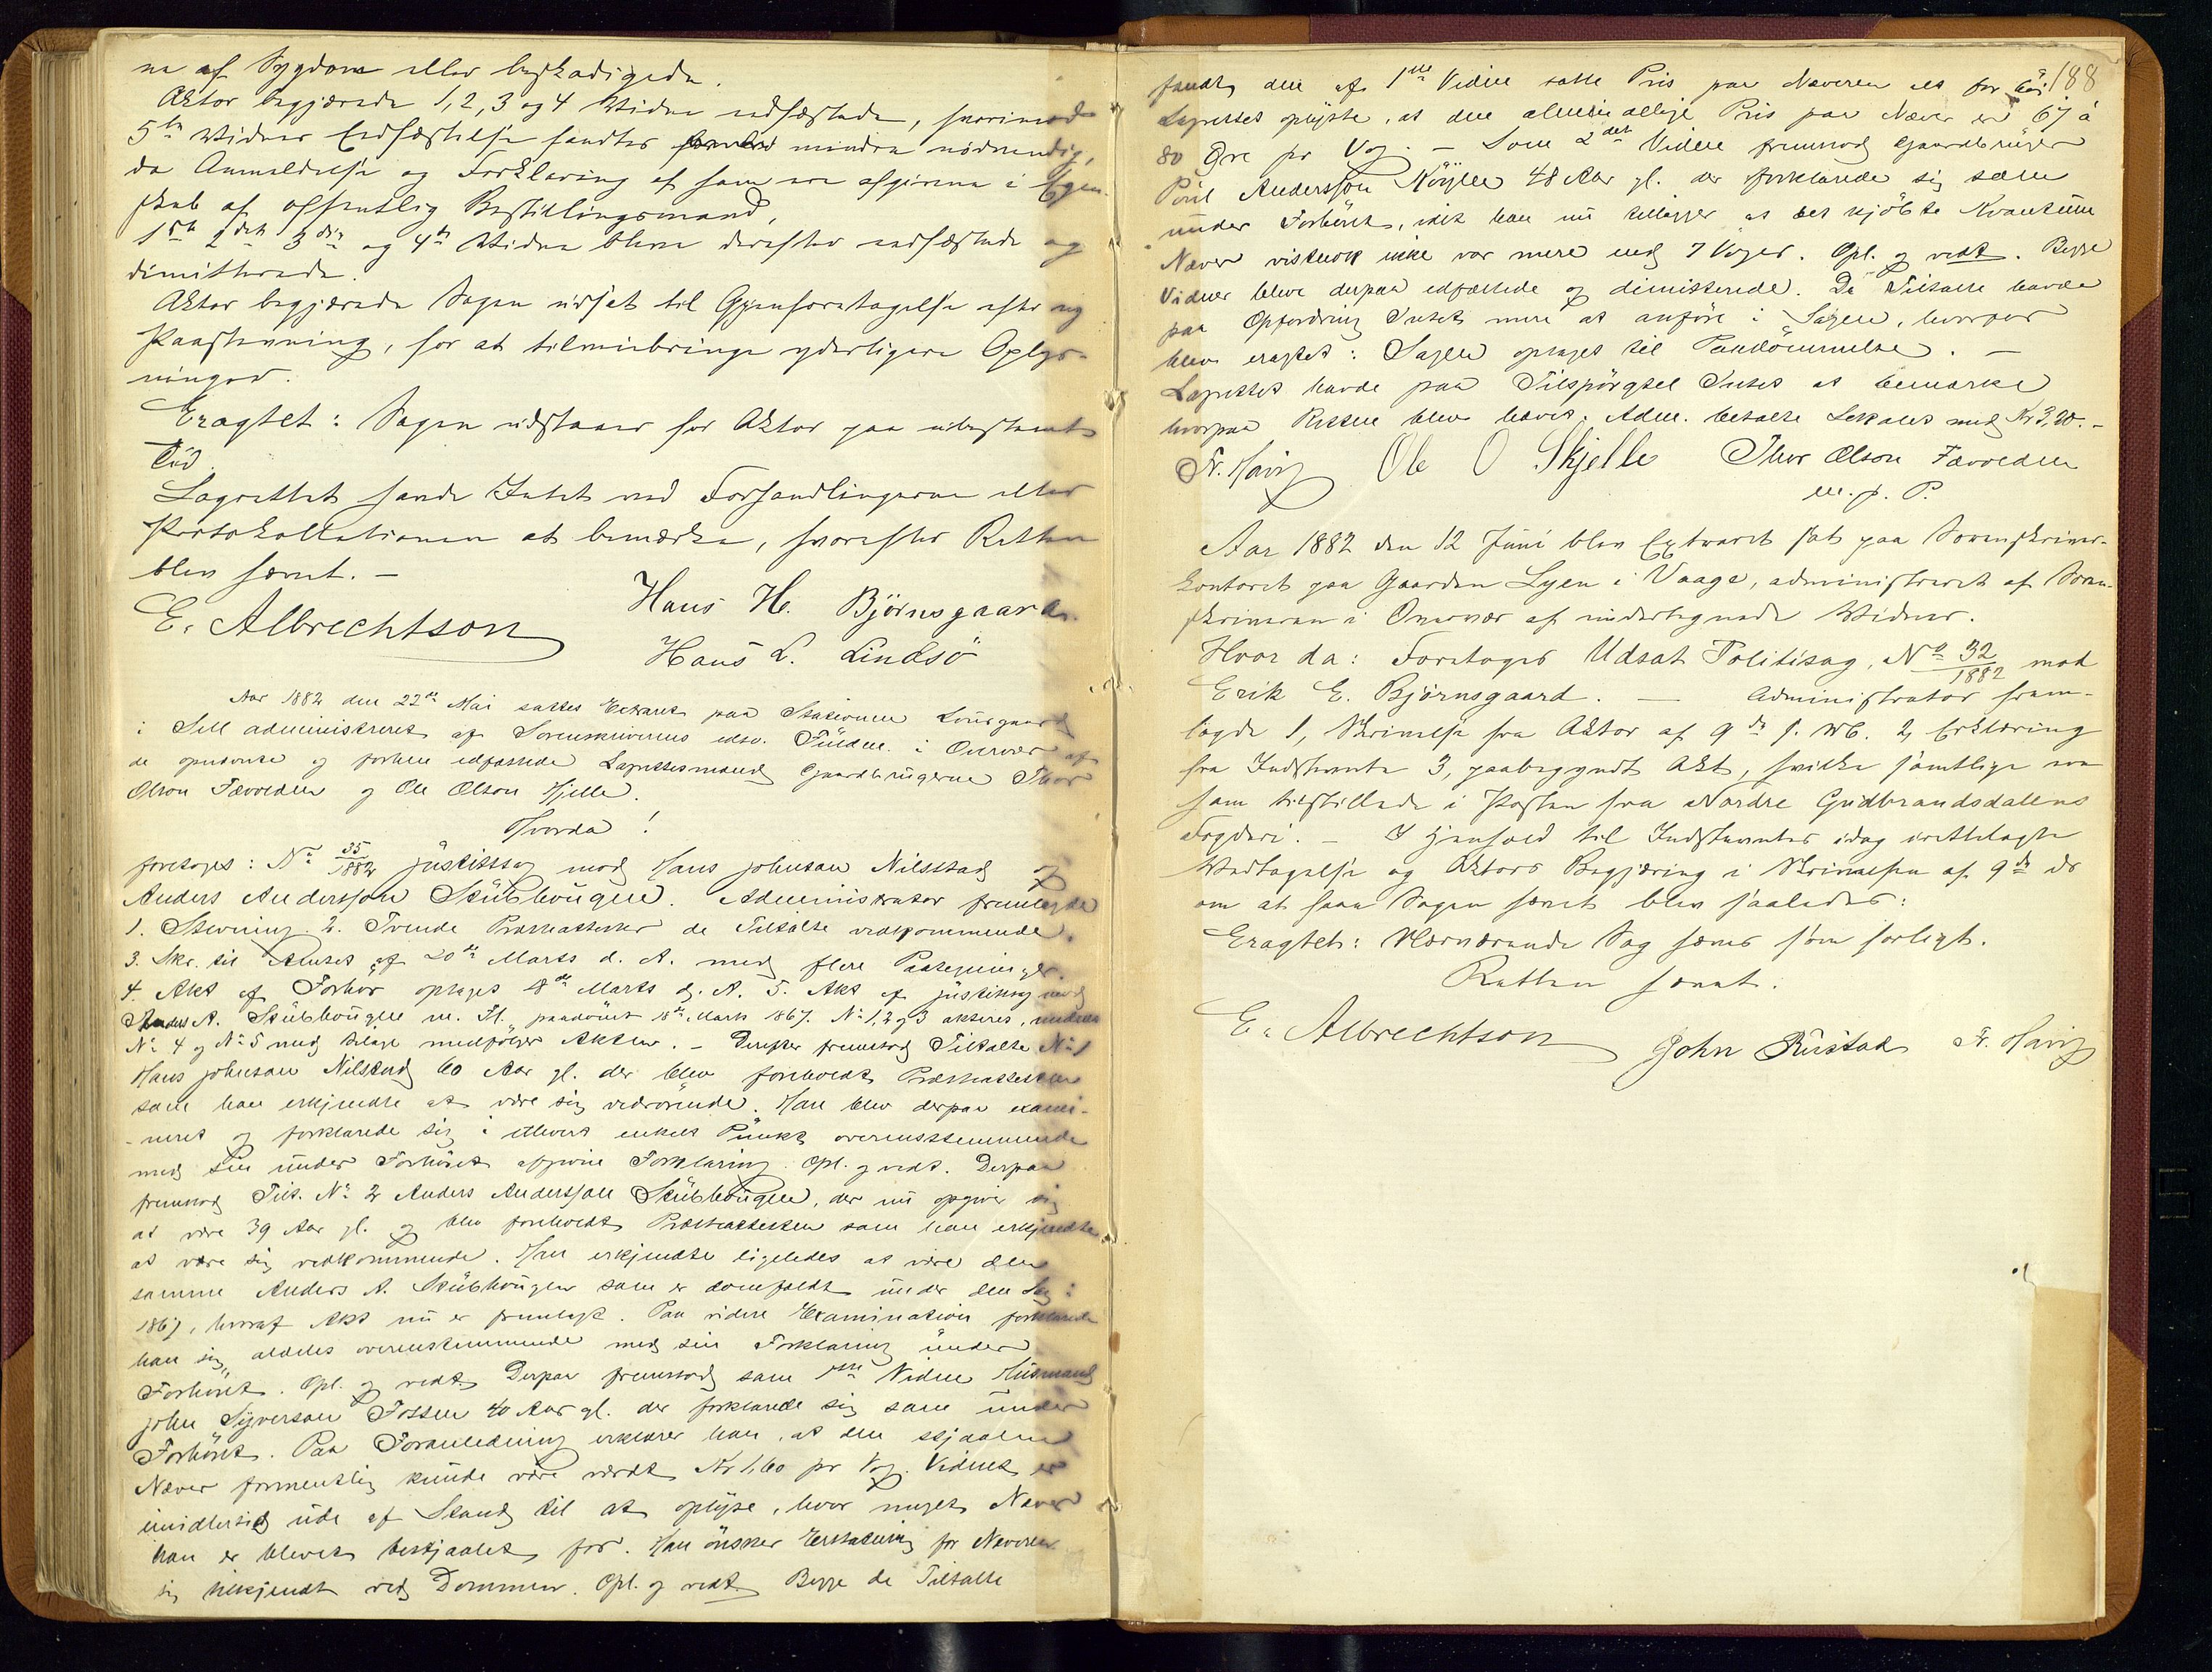 ne af Sygdom eller beskadigede.
Aktor begjærede 1, 2, 3 og 4 Vidne edfæstede, hvorimod
5te Vidnes Edfæstelse fandtes mindre nødvendig,
da Anmeldelse og Forklaring af ham ere afgivne i Egen-
skab af offentlig Bestillingsmand,
1ste 2det 3die og 4de Vidne bleve derefter edfæstede og
dimitterede.
Aktor begjærede Sagen udsat til Gjenforetagelse efter ny
Paastevning, for at tilveiebringe yderligere Oplys-
ninger.
Eragtet: Sagen udstaaer for Aktor paa ubestemt
Tid.
Lagrettet havde Intet ved Forhandlingerne eller
Protokollationen at bemærke, hvorefter Retten
blev hævet. -
E. Albrechtson Hans H. Björnsgaard.
Hans L. Lindsö
Aar 1882 den 22de Mai sattes Extraret paa Stationen Lousgaard
i Sell administreret af Sorenskriverens edsv. Fuldm. i Overvær af
de opnævnte og forhen edfæstede Lagrettesmænd Gaardbrugerne Thor
Olson Færverden og Ole Olson Skjelle.
Hvorda!
foretoges: No 35/1882 Justitssag mod Hans Johnsen Nilsstad og
Anders Anderssen Stubhougen. Administrator fremlagde
1. Stevning. 2. Tvende Præsteattester de Tiltalte vedkommende.
3. Skr. til Amtet af 20de Marts d. A. med flere Paategninger.
4. Akt af Forhør optaget 8de Marts d. A. 5. Akt af Justitssag mod
Anders A. Stubhougen m. Fl. paadömt 18de Marts 1867. No 1, 2 og 3 akteres, medens
No 4 og No 5 med Bilage medfölger Akten. - Derefter fremstod Tiltalte No 1
Hans Johnsen Nilsstad 60 Aar gl. der blev foreholdt Præsteattesten
som han erkjendte at være sig vedrörende. Han blev derpaa exami-
-neret og forklarede sig i ethvert enkelt Punkt overensstemmende
med sin under Forhöret afgivne Forklaring. Opl. og vedt. Derpaa
fremstod Tilt. No 2 Anders Anderssen Stubhougen, der nu opgiver sig
at være 39 Aar gl. og blev foreholdt Præsteattesten som han erkjendte
at være sig vedkommende. Han erkjendte ligeledes at være den
samme Anders A. Stubhougen som er domfældt under den Sag i
1867, hvoraf Akt nu er fremlagt. Paa videre Examination forklarede
han sig aldeles overensstemmende med sin Forklaring under
Forhöret. Opl. og vedt. Derpaa fremstod som 1ste Vidne Husmand
John Syversen Fossen 40 Aar gl. der forklarede sig som under
Forhöret. Paa Foranledning erklærer han, at den stjaalne
Næver formentlig kunde være værdt Kr 1,60 pr Vog. Vidnet er
imidlertid ude af Stand til at oplyse, hvor meget Næver
han er blevet bestjaalet for. Han önsker Erstatning for Næveren
sig tilkjendt ved Dommen. Opl. og vedt. Begge de Tiltalte
188
fandt den af 1ste Vidne satte Pris paa Næveren at for höi.
Lagrettet oplyste, at den almindelige Pris paa Næver er 67 à
80 Øre pr Vog. - Som 2det Vidne fremstod Gaardbruger
Poul Anderssen 48 Aar gl. der forklarede sig som
under Forhöret, idet han nu tillægger at det kjöbte Kvantum
Næver vistnok ikke var mere end 7 Voger. Opl. og vedt. Begge
Vidner bleve derpaa edfæstede og dimitterede. De Tiltalte havde
paa Opfordring Intet mere at anföre i Sagen, hvorfor
blev eragtet: Sagen optages til Paadömmelse. -
Lagrettet havde paa Tilspörgsel Intet at bemærke
hvorpaa Retten blev hævet. Adm. betalte Lokalet med Kr 3,20. -
Fr. Havig Ole O Skjelle Thor Olson Færverden
m. p. P.
Aar 1882 den 12 Juni blev Extraret sat paa Sorenskriver-
kontoret paa Gaarden Syen i Vaage, administreret af Soren-
skriveren i Overvær af undertegnede Vidner.
Hvor da: Foretoges Udsat Politisag, No 32/1882 mod
Erik E. Björnsgaard. - Administrator frem-
lagde 1, Skrivelse fra Aktor af 9de s. M. 2, Erklæring
fra Indstevnte 3, paabegyndt Akt, hvilke samtlige ere
ham tilstillede i Posten fra Nordre Gudbrandsdalens
Fogderi. - I Henhold til Indstevntes idag irettelagte
Vedtagelse og Aktors Begjæring i Skrivelsen af 9de ds
om at faa Sagen hævet blev saaledes:
Eragtet: Nærværende Sag hæves som forligt.
Retten hævet.
E. Albrechtson John Rustad Fr. Havig